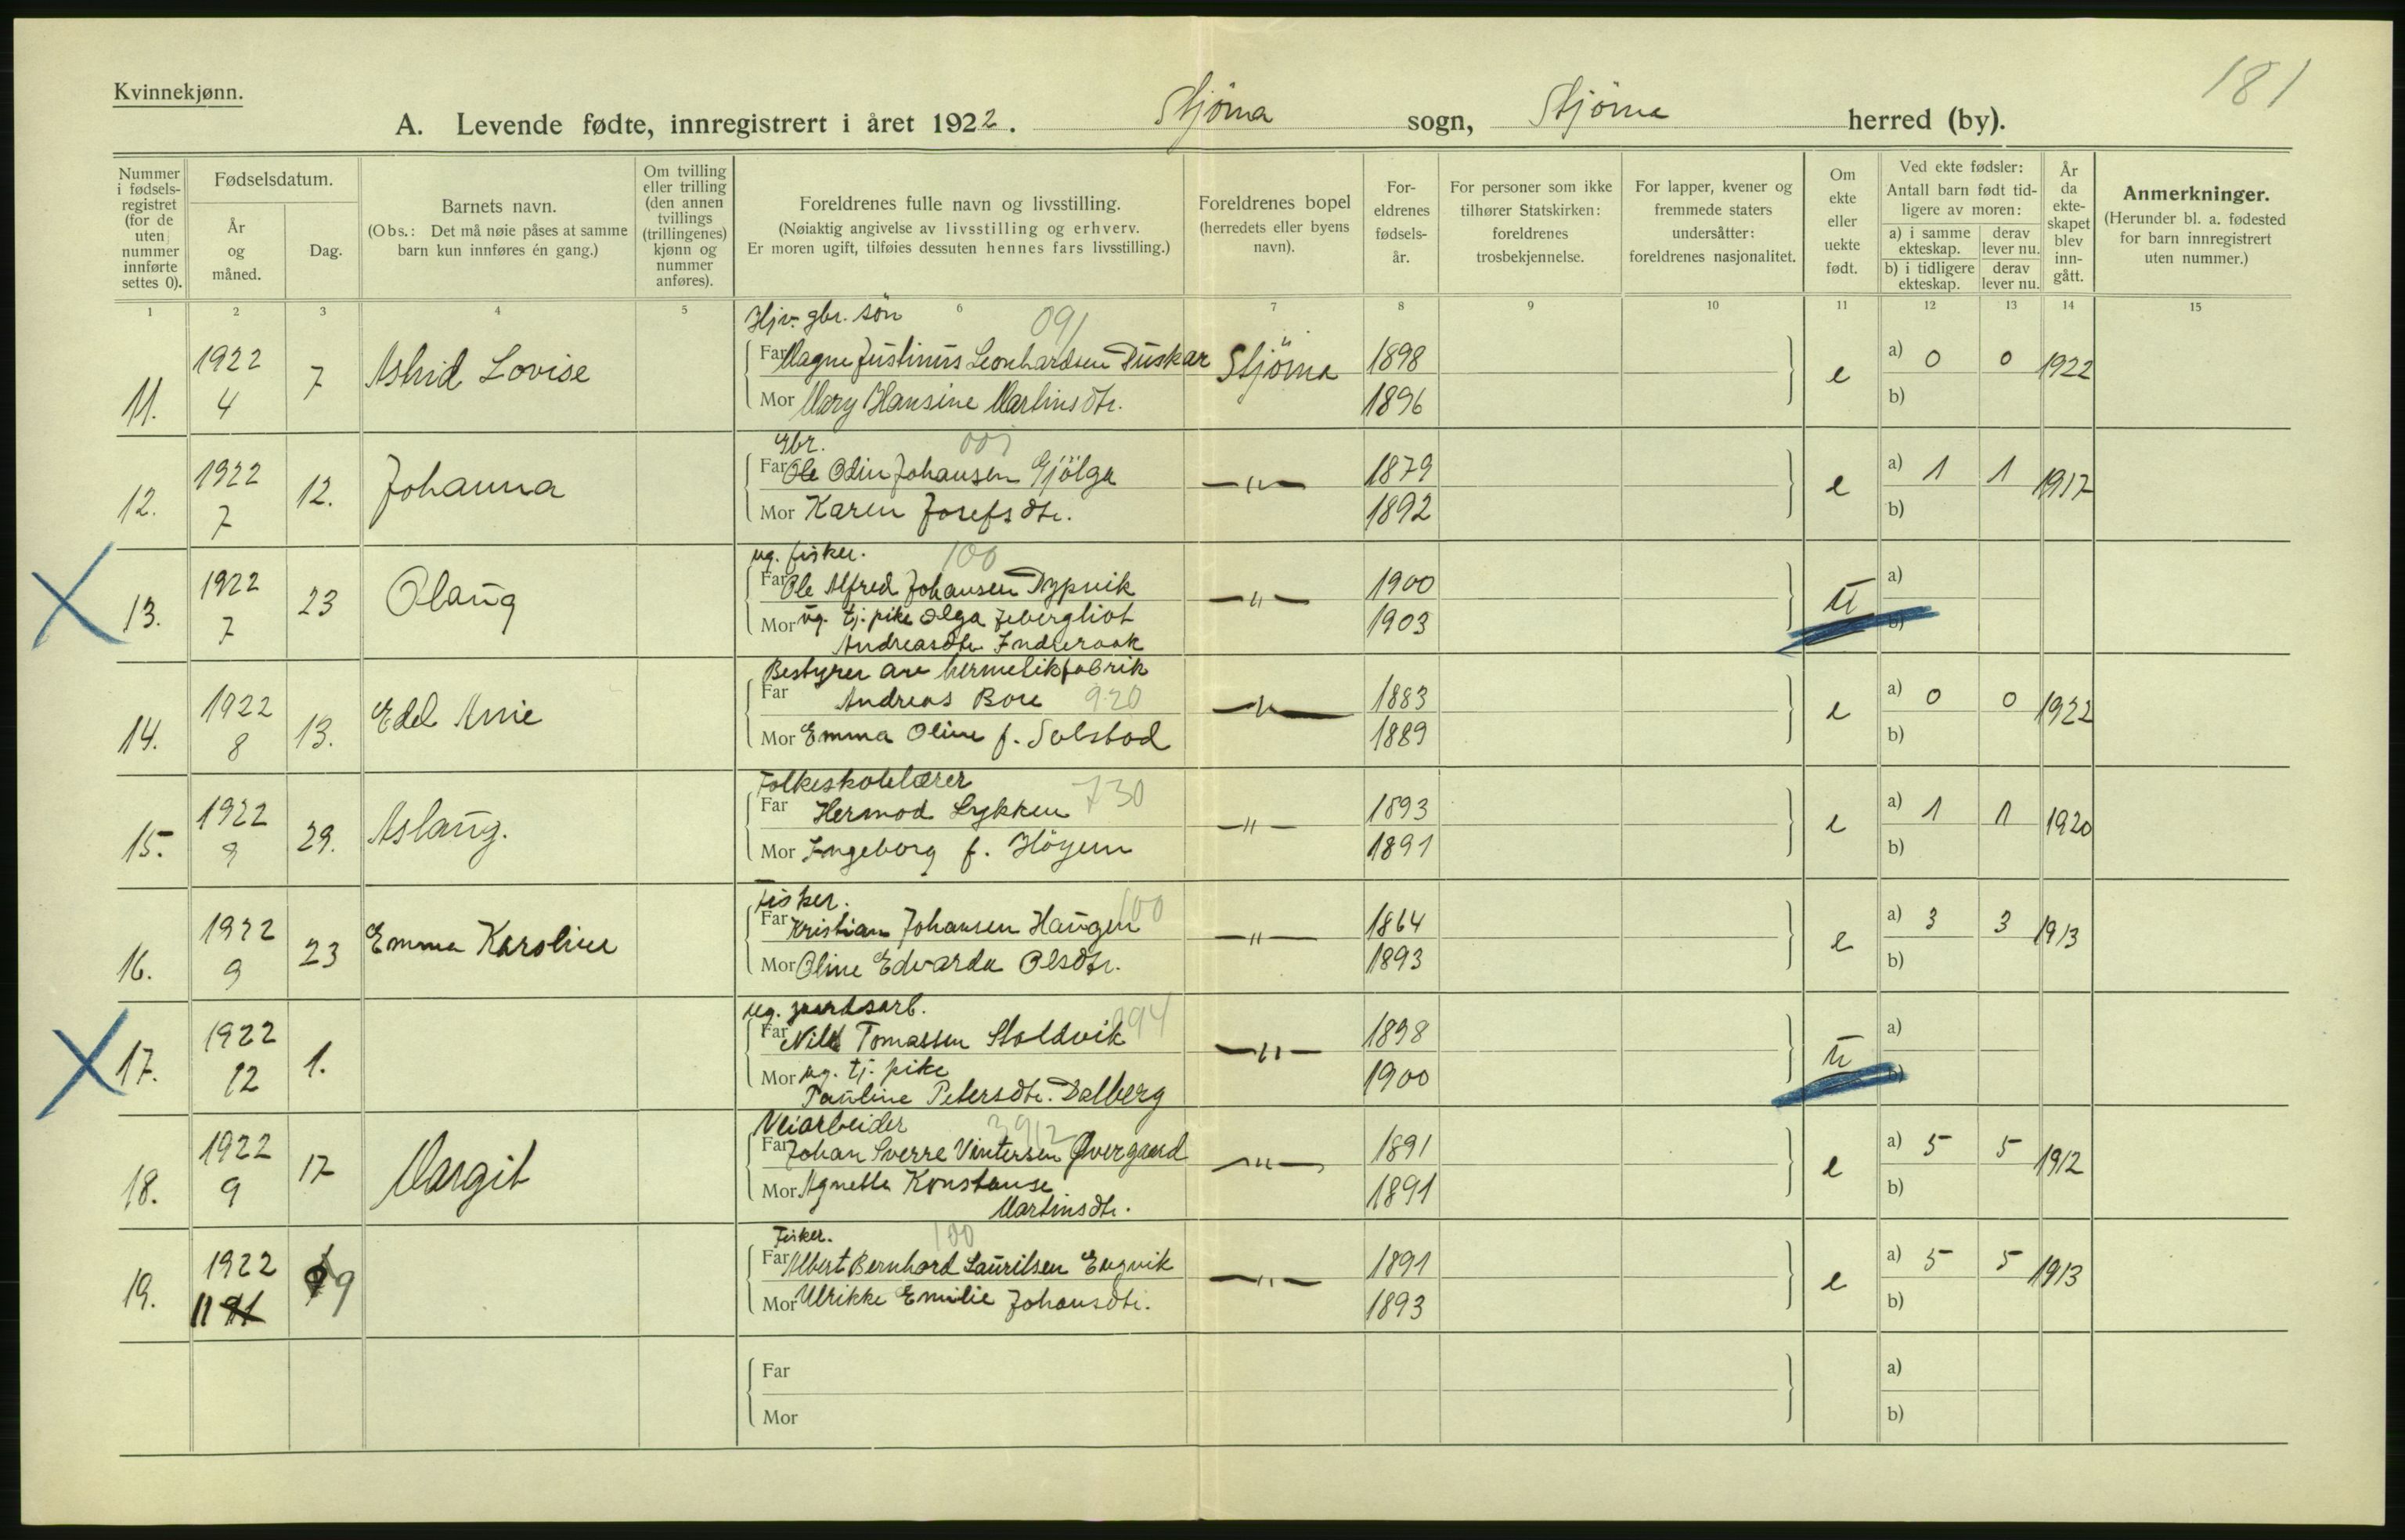 Kvinnekjønn.
181
A. Levende fødte, innregistrert i året 1922. Stjörna sogn, Stjörna herred (by).
Nummer i fødsels-registret (for de uten nummer innførte settes 0).
Fødselsdatum.
År og måned.
Dag.
Barnets navn.
(Obs.: Det må nøie påses at samme barn kun innføres én gang.)
Om tvilling eller trilling (den annen tvillings (trillingenes) kjønn og nummer anføres).
Foreldrenes fulle navn og livsstilling.
(Nøiaktig angivelse av livsstilling og erhverv.
Er moren ugift, tilføies dessuten hennes fars livsstilling.)
Foreldrenes bopel
(herredets eller byens navn).
For-eldrenes fødsels-år.
For personer som ikke tilhører Statskirken: foreldrenes trosbekjennelse.
For lapper, kvener og fremmede staters undersåtter: foreldrenes nasjonalitet.
Om ekte eller uekte født.
Ved ekte fødsler:
Antall barn født tid-ligere av moren:
a) i samme ekteskap. derav lever nu.
b) i tidligere ekteskap. derav lever nu.
År da ekte-skapet blev inn-gått.
Anmerkninger.
(Herunder bl. a. fødested for barn innregistrert uten nummer.)
1 2 3 4 5 6 7 8 9 10 11 12 13 14 15
Hjv. gbr. sön 091
11. 1922 4 7 Astrid Lovise
Far Magne Justinus Leonhardsen Duskar Stjörna 1898 e a) 0 0 1922
Mor Mary Hansine Martinsdtr. 1896 b)
Gbr. 001
12. 1922 7 12. Johanna
Far Ole Odin Johansen Gjölga —"— 1879 e a) 1 1 1917
Mor Karen Josefsdtr. 1892 b)
ug. fisker. 100
X 13. 1922 7 23 Olaug
Far Ole Alfred Johansen Dypvik —"— 1900 u a)
Mor ug. tj. pike Olga Jebergliot 1903 b)
Andreasdtr. Indreraak
Bestyrer av hermetikfabrik
14. 1922 8 13. Edel Arrie
Far Andreas Bore 920 —"— 1883 e a) 0 0 1922
Mor Emma Oline f. Solstad 1889 b)
Folkeskolelærer 730
15. 1922 9 29. Aslaug.
Far Hermod Lykken —"— 1893 e a) 1 1 1920
Mor Ingeborg f. Höyem 1891 b)
Fisker. 100
16. 1922 9 23 Emma Karoline
Far Kristian Johansen Haugen —"— 1864 e a) 3 3 1913
Mor Oline Edvarda Olsdtr. 1893 b)
ug. gaardsarb. 094
X 17. 1922 12 1.
Far Nils Tomassen Stoldvik —"— 1898 u a)
Mor ug. tj. pike 1900 b)
Pauline Petersdtr. Dalberg
Veiarbeider 3912
18. 1922 9 17 Margit
Far Johan Sverre Vintersen Øvergaard —"— 1891 e a) 5 5 1912
Mor Agnetha Konstanse 1891 b)
Martinsdtr.
Fisker. 100
19. 1922 11 19
Far Albert Bernhard Lauritsen Engvik —"— 1891 e a) 5 5 1913
Mor Ulrikke Emilie Johansdtr. 1893 b)
Far a)
Mor b)